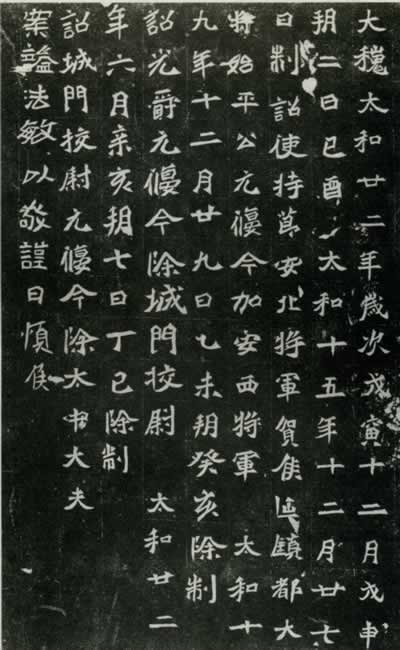 大魏太和廿二年歲次戊寅十二月戊申
朔二日己酉 太和十五年十二月廿七
日制詔使持節安北將軍賀侯延鎮都大
將始平公元偃今加安西將軍 太和十
九年十二月廿九日乙未朔癸亥除制
詔光爵元偃今除城門校尉 太和廿二
年六月辛亥朔七日丁巳除制
詔城門校尉元偃今除太中大夫
案謚法敏以敬謹曰順侯